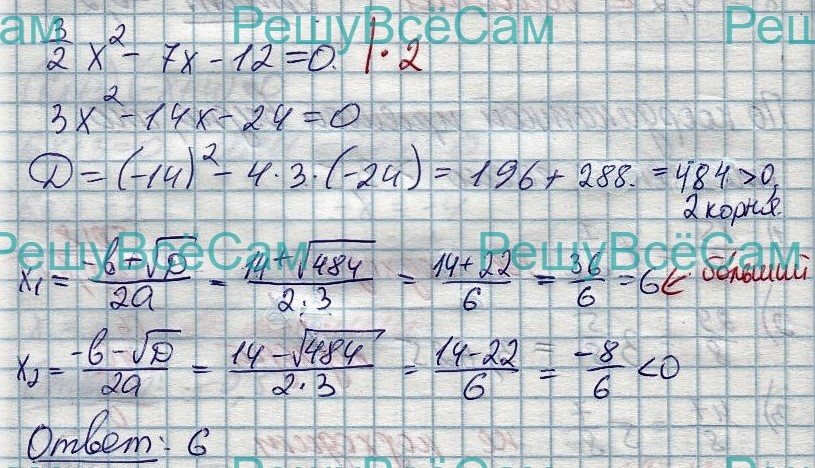 РешуВсёСам РешуВсёСам Реш
3/2 x² - 7x - 12 = 0. | · 2
3x² - 14x - 24 = 0
D = (-14)² - 4 · 3 · (-24) = 196 + 288. = 484 > 0,
2 корня.
РешуВсёСам РешуВсёСам
x₁ = (-b + √D)/2a = (14 + √484)/(2 · 3) = (14 + 22)/6 = 36/6 = 6 ← больший
x₂ = (-b - √D)/2a = (14 - √484)/(2 · 3) = (14 - 22)/6 = -8/6 < 0
Ответ: 6
РешуВсёСам РешуВсёСам Реш